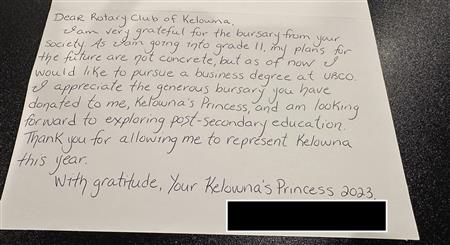 Dear Rotary Club of Kelowna,
I am very grateful for the bursary from your
society. As I am going into grade 11, my plans for
the future are not concrete, but as of now I
would like to pursue a business degree at UBCO.
I appreciate the generous bursary you have
donated to me, Kelowna's Princess, and am looking
forward to exploring post-secondary education.
Thank you for allowing me to represent Kelowna
this year.
With gratitude, Your Kelowna's Princess 2023,